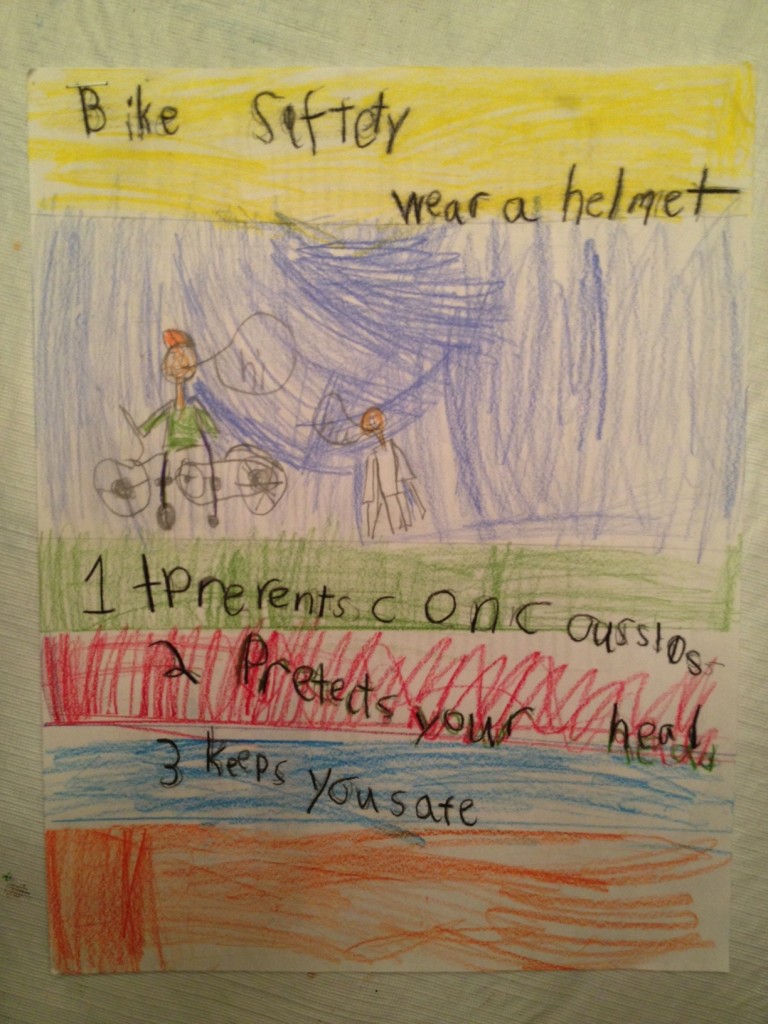 Bike Saftety
wear a helmet
hi
1 tprerents concoussios
2 Pretects your head
3 keeps you sate